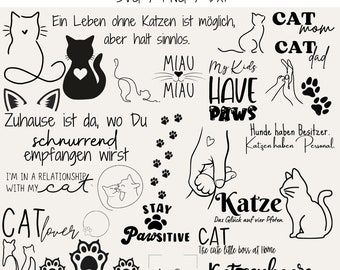 SVG / PNG / DXF
Ein Leben ohne Katzen ist möglich,
aber halt sinnlos.
CAT
mom
CAT
dad
MIAU
MIAU
My Kids
HAVE
PAWS
Zuhause ist da, wo Du
schnurrend
empfangen wirst
Hunde haben Besitzer.
Katzen haben Personal.
I'M IN A RELATIONSHIP
WITH MY cat
Katze
Das Glück auf vier Pfoten.
STAY
PAWSITIVE
CAT lover
CAT
The cute little boss at Home